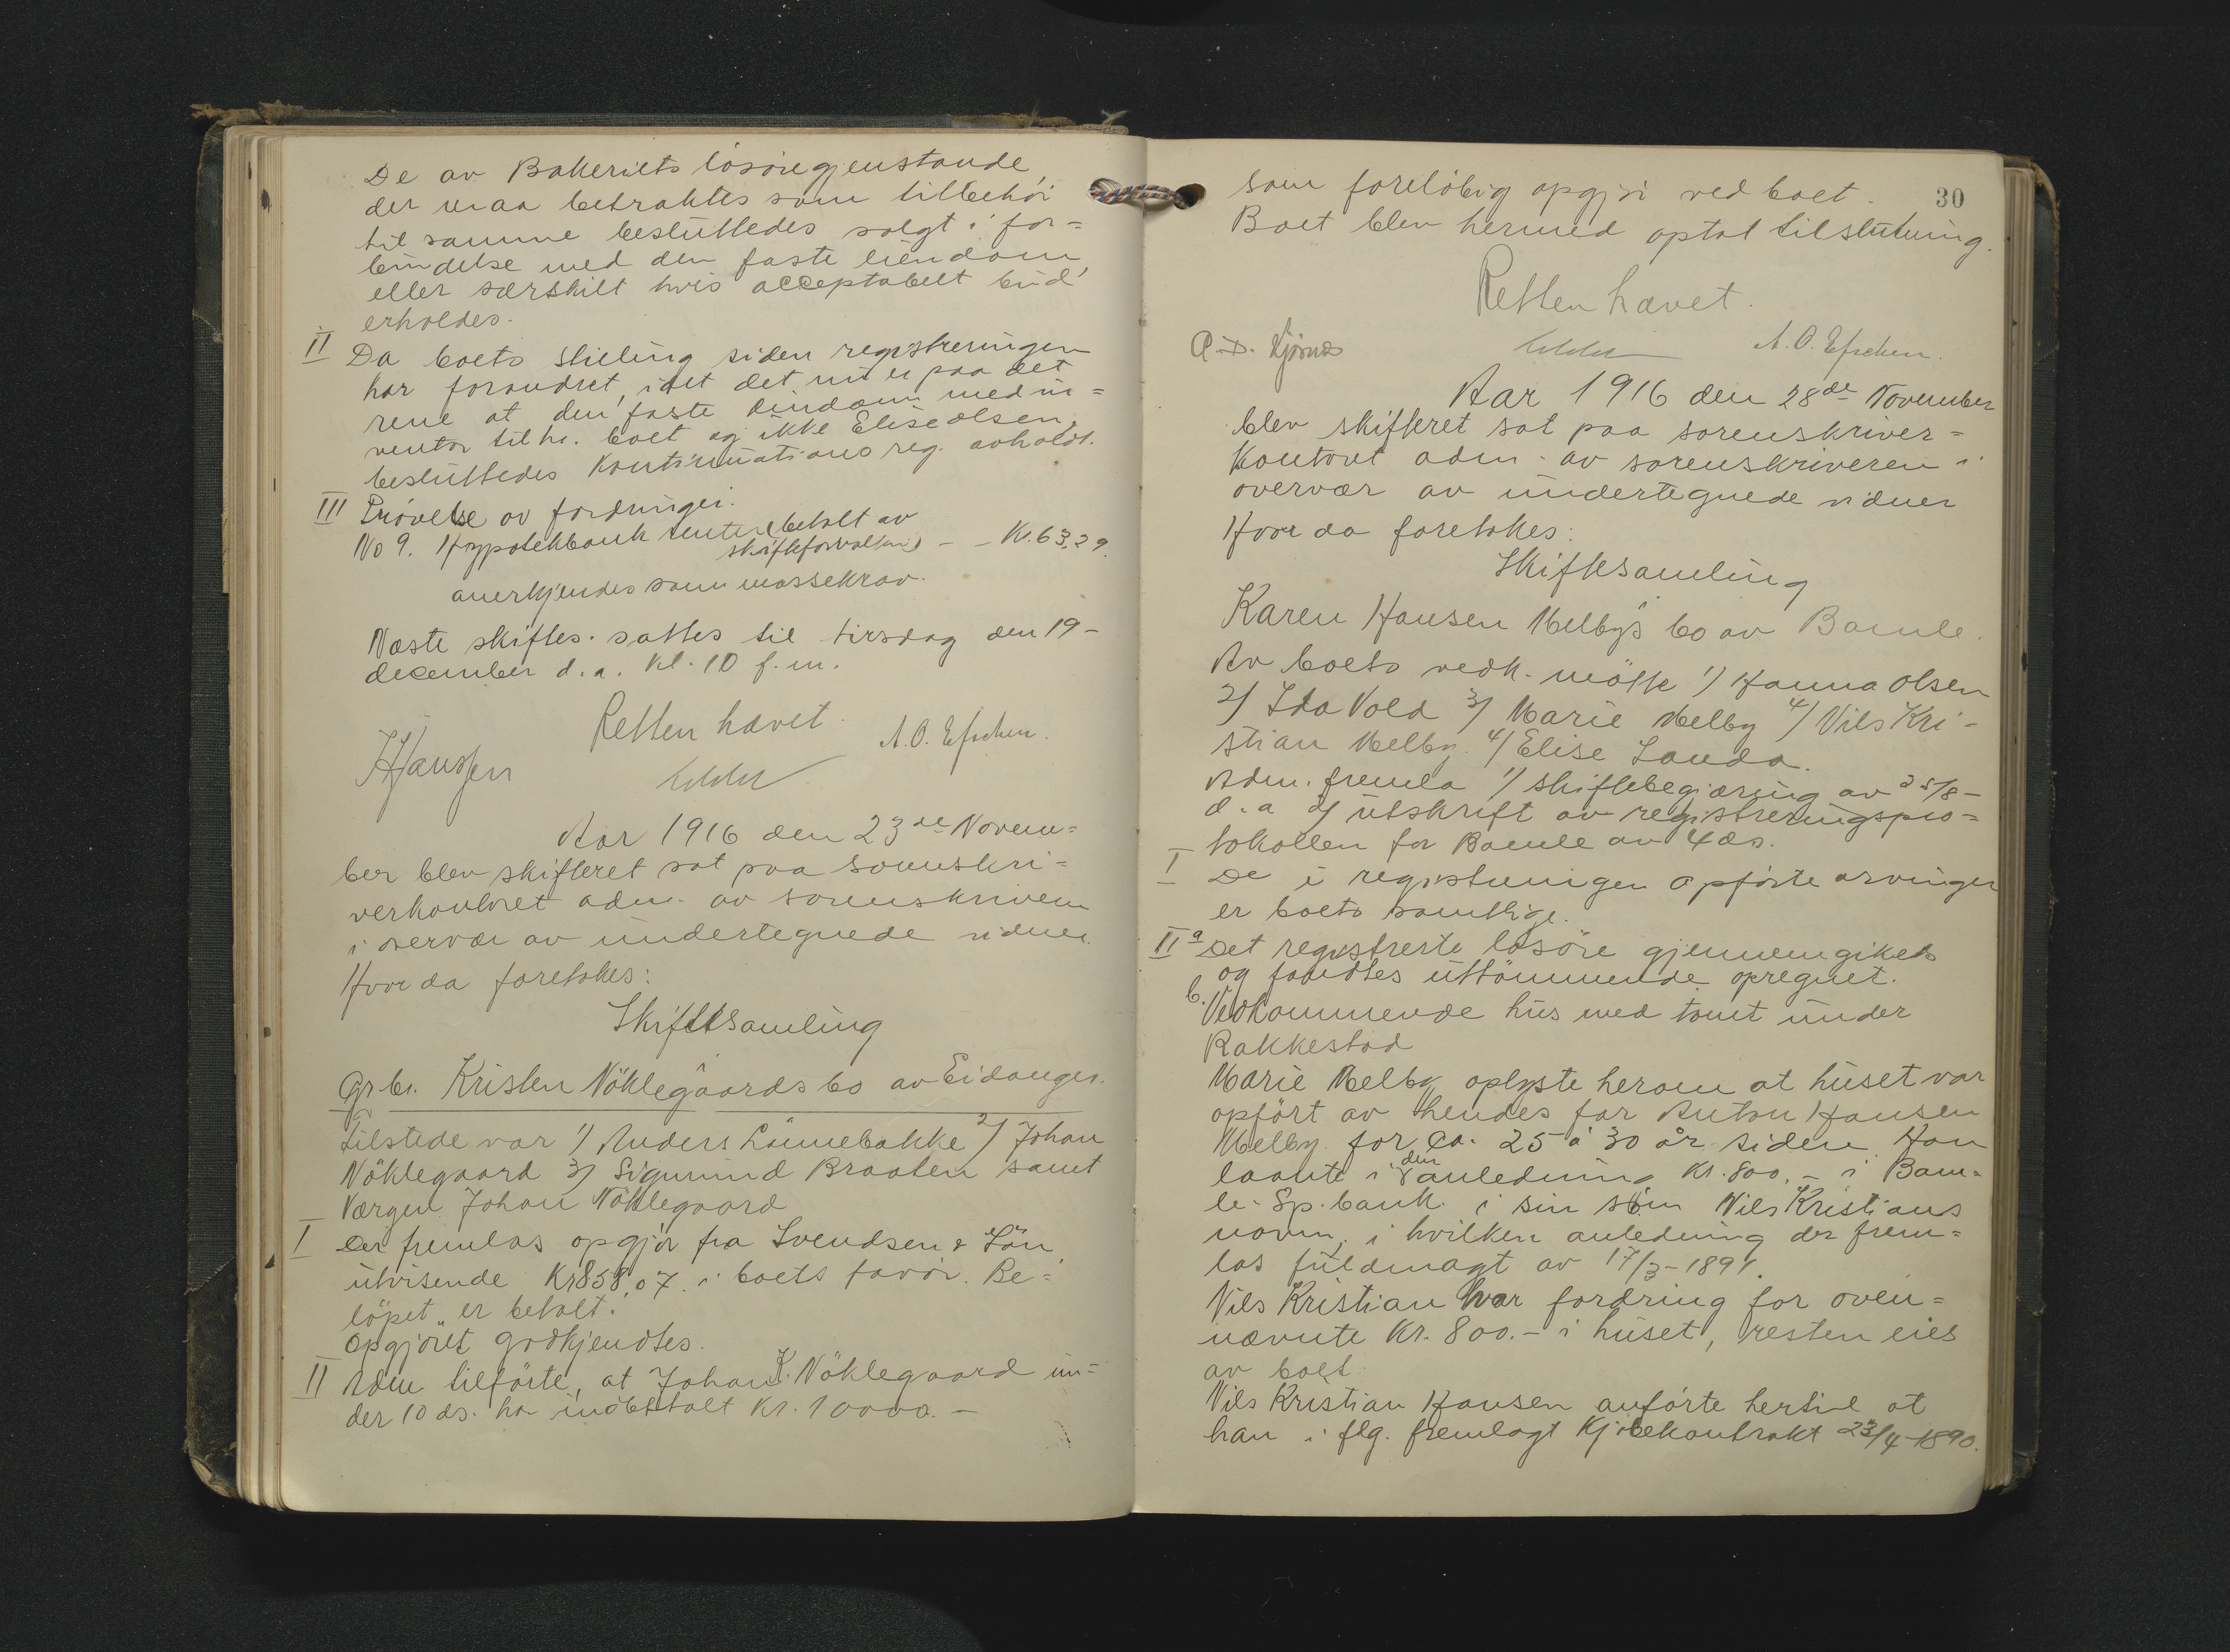 De av Bakeriets lösöregjenstande
der maa betraktes som tilbehör
til samme besluttedes solgt i for=
bindelse med den faste eiendom
eller særskilt hvis acceptabelt bud
erholdes.
II Da boets stilling siden registreringen
har forandret, idet det nu er paa det
rene at den faste eiendom med in=
ventar tilh. boet og ikke Elise Olsen,
besluttedes Kontinuations reg. avholdt.
III Prövelse av fordringer.
No 9. Hypotekbank renter (betalt av
skifteforvalteren) - - Kr. 63,29.
anerkjendes som massekrav.
Næste skiftes. sattes til tirsdag den 19-
december d.a. kl. 10 f.m.
Retten hævet.
A.O.
Hansen
Aar 1916 den 23de Novem=
ber blev skifteret sat paa sorenskri=
verkontoret adm. av sorenskriveren
i overvær av undertegnede vidner.
Hvor da foretokes:
Skiftesamling
Grbr. Kristen Nöklegaards bo av Eidanger.
Tilstede var 1) Anders Lönnebakke 2) Johan
Nöklegaard 3) Sigmund Braaten samt
Værgen Johan Nöklegaard
I Der fremlas opgjör fra Svendsen & Sön
utvisende Kr 858,07 i boets favör. Be=
löpet er betalt.
Opgjöret godkjendtes.
II Adm tilförte, at Johan K. Nöklegaard un=
der 10 ds. har indbetalt Kr. 10000.-
30
som forelöbig opgjör ved boet.
Boet blev hermed optat til slutning.
Retten hævet.
A.O.
A.D.
Aar 1916 den 28de November
blev skifteret sat paa sorenskriver=
kontoret adm. av sorenskriveren i
overvær av undertegnede vidner
Hvor da foretokes:
Skiftesamling
Karen Hansen Melby's bo av Bamle.
Av boets vedk. mötte 1) Hanna Olsen
2) Ida Vold 3) Marie Melby 4) Nils Kri-
stian Melby. 4) Elise Landa.
Adm. fremla 1) skiftebegjæring av 25/8-
d.a 2) utskrift av registreringspro=
tokollen for Bamle av 4 ds.
I De i registreringen opförte arvinger
er boets samtlige.
II a Det registrerte lösöre gjennemgikkes
og fandtes uttömmende opregnet.
b. Vedkommende hus med tomt under
Rakkestad
Marie Melby oplyste herom at huset var
opfört av hendes far Anton Hansen
Melby for ca. 25 á 30 år siden. Han
laante i den anledning Kr. 800.- i Bam=
le Sp.bank i sin sön Nils Kristians
navn, i hvilken anledning der frem=
las fuldmagt av 17/3-1891.
Nils Kristian har fordring for oven=
nævnte Kr. 800.- i huset, resten eies
av boet.
Nils Kristian Hansen anförte hertil at
han i flg. fremlagt Kjöbekontrakt 23/4-1890.